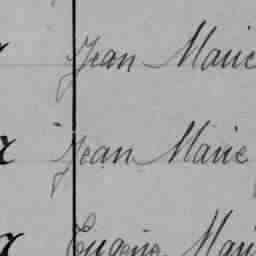 Jean Marie
Jean Marie
Eugène Mari